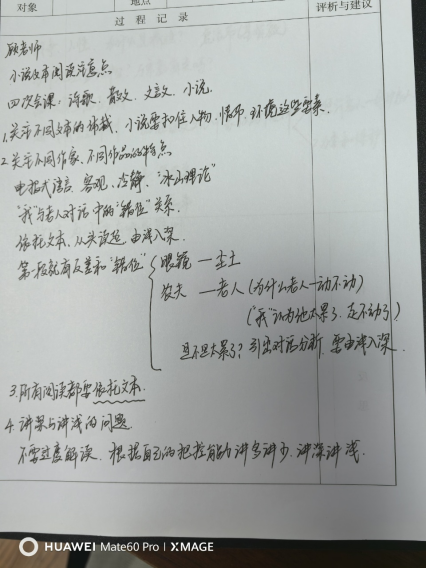 对象
地点
过程记录
评析与建议
顾老师
小说文本阅读注意点
四次会课：诗歌、散文、文言、小说.
1.关于不同文本的体裁、小说要扣住人物、情节、环境这些要素.
2.关于不同作家、不同作品的特点
电报式语言、客观、冷静、"冰山理论"
"我"与老人对话中的"错位"关系.
依托文本、从头说起.由浅入深.
第一段就有反差和"错位"
眼镜 — 尘土
农夫 — 老人 (为什么老人一动不动)
("我"认为他太累了、走不动了)
是不是太累了? 引出对话分析. 要由浅入深.
3.所有阅读都要依托文本.
4.讲深与讲浅的问题.
不要过度解读、根据自己的把控能力讲多讲少、讲深讲浅.
HUAWEI Mate60 Pro | XMAGE